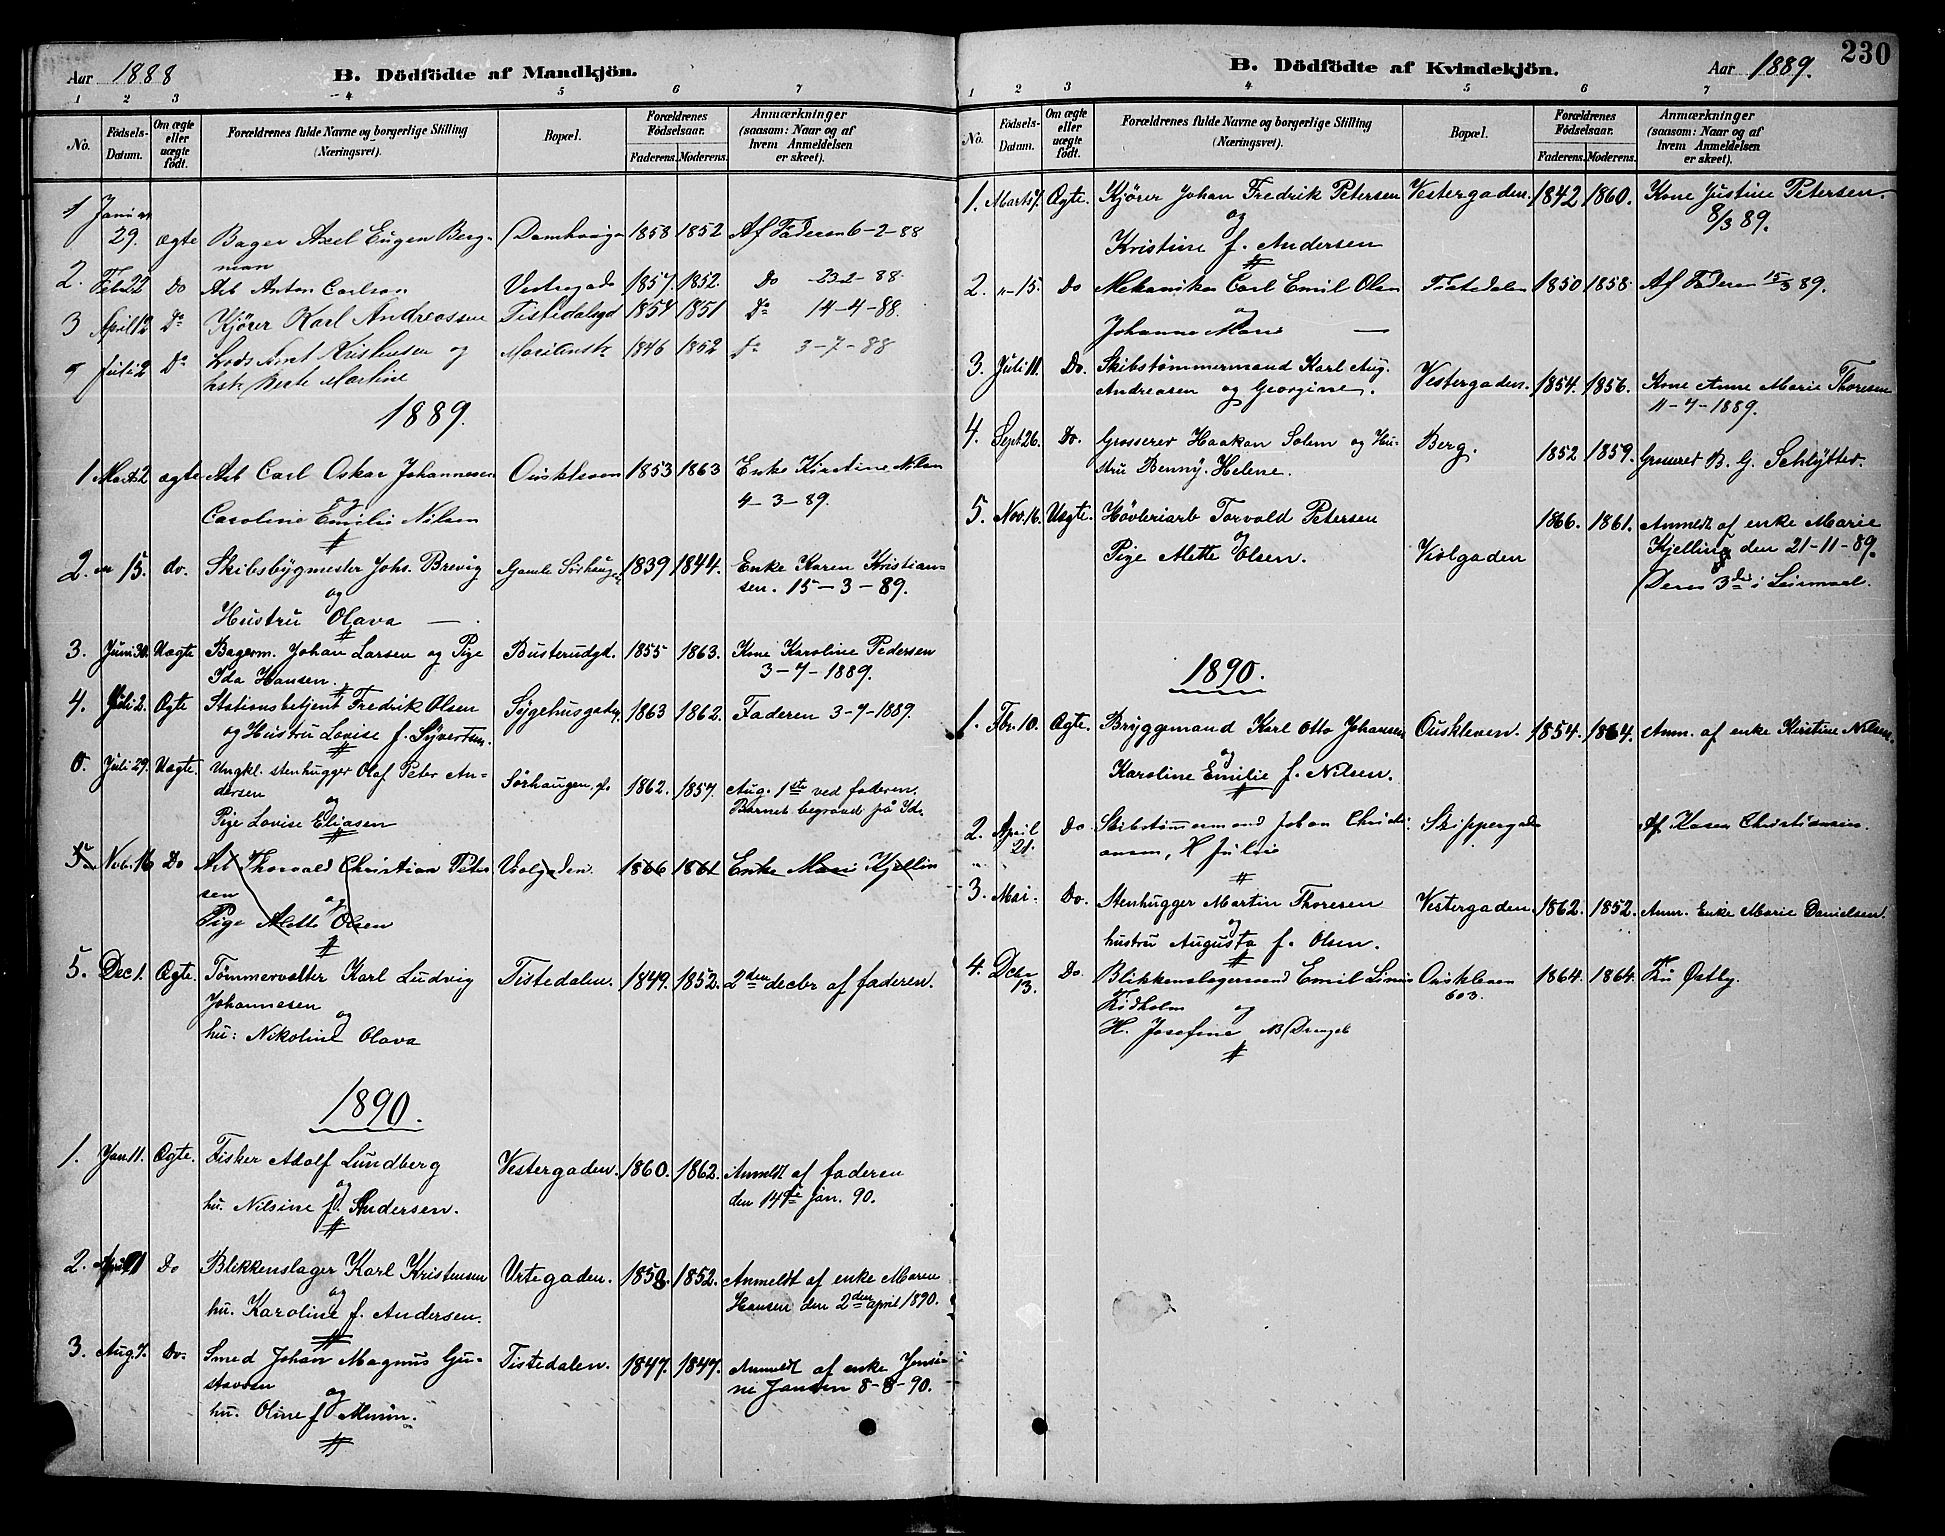 230
Aar 1888 B. Dödfödte af Mandkjön.
1 2 3 4 5 6 7
No. Födsels-Datum. Om ægte eller uægte födt. Forældrenes fulde Navne og borgerlige Stilling (Næringsvei). Bopæl. Forældrenes Födselsaar. Faderens. Moderens. Anmærkninger (saasom: Naar og af hvem Anmeldelsen er skeet).
1
29. ægte Bager Axel Eugen Berg- 1858 1852 Af Faderen 6-2-88
man
2. Feb 22 Do Arb Anton Carlson 1857. 1852. Do 23-2-88
3 April 12 Do Kjörer Karl Andreassen Tistedalsgd 1854 1851 Do 14-4-88.
Juli 2 Do Kristensen og 1846 1852 Do 3-7-88
Berte Martine
1889.
1 Marts 2 ægte Arb Carl Oskar Johannesen Ouskleven 1853 1863 Enke Kirstine Nilsen
og 4-3-89.
Caroline Emilie Nilsen
2. 15. do. Skibsbygmester Johs. Brevig Gamle Sørhaugen 1839 1844. Enke Karen Kristian-
og sen. 15-3-89.
Hustru Olava —.
3. Juni 30. Uægte Bagerm. Johan Larsen og Pige Busterudgd. 1855 1863. Kone Karoline Pedersen
Ida Hansen. 3-7-1889.
4. Juli 2. Ægte Stationsbetjent Fredrik Olsen Sygehusgaden 1863 1862. Faderen 3-7-1889.
og Hustru Lovise f. Syvertsen.
0. Juli 29. Uægte. Ungkl. stenhugger Olaf Peter An- Sørhaugen 1862. 1857. Aug. 1ste ved faderen.
dersen og Barnet begravet på Id
Pige Lovise Eliasen
5 Nvb. 16 Do Arb Thorvald Christian Peter Violgaden. 1866 1861 Enke Marie Kjellin
sen og
Pige Alette Olsen
5. Dec 1. Ægte. Tömmervelter Karl Ludvig Tistedalen. 1849. 1852. 2den decbr af faderen.
Johannesen og
hu: Nikoline Olava
1890.
1. Jan. 11. Ægte. Fisker Adolf Lundberg Vestergaden. 1860. 1862. Anmeldt af faderen
og den 14de jan. 90.
hu. Nilsine f. Andersen.
2. April 1 Do Blikkenslager Karl Kristensen Urtegaden. 1858. 1852. Anmeldt af enke Maren
og Hansen den 2den april 1890.
hu. Karoline f. Andersen.
3. Aug. 7. Do. Smed Johan Magnus Gu- Tistedalen. 1847. 1847. Anmeldt af enke Jensi-
stavsen og ne Jansen 8-8-90.
hu. Oline f.
B. Dödfödte af Kvindekjön. Aar 1889.
1 2 3 4 5 6 7
No. Födsels-Datum. Om ægte eller uægte födt. Forældrenes fulde Navne og borgerlige Stilling (Næringsvei). Bopæl. Forældrenes Födselsaar. Faderens. Moderens. Anmærkninger (saasom: Naar og af hvem Anmeldelsen er skeet).
1. Marts 7. Ægte. Kjörer Johan Fredrik Petersen Vestergaden. 1842 1860. Kone Justine Petersen.
og 8/3 89.
Kristine f. Andersen
2. 15. Do Mekaniker Carl Emil Olsen Tistedalen 1850 1858. Af Faderen 15/3 89.
og
Johanne Marie —
3. Juli 11. Do. Skibstømmermand Karl Aug. Vestergaden. 1854. 1856. Kone Anne Marie Thoresen
Andreasen og Georgine. 11-7-1889.
4. Sept 26. Do. Grosserer Haakon Solem og Hu- Berg. 1852 1859. Grosserer B. G. Schlytter.
stru Benny Helene.
5. Nov. 16. Uægte. Høvleriarb Torvald Petersen 1866. 1861. Anmeldt af enke Marie
og Kjelling den 21-11-89.
Pige Alette Olsen. Violgaden Deres 3de i Leiermaal.
1890.
1. Fbr. 10. Ægte. Bryggemand Karl Otto Johansen Ouskleven. 1854. 1864. Anm. af enke Kirstine Nilsen.
og
Karoline Emilie f. Nilsen.
2. April Do Skibstømmermand Johan Christi- Skippergaden Af Karen Christiansen.
21. ansen, H Julie
3. Mai. Do. Stenhugger Martin Thoresen Vestergaden. 1862. 1852. Anm. Enke Marie Danielsen.
og
hustru Augusta f. Olsen.
4. Dcbr Do. Blikkenslagersvend Emil Linus Ouskleven 1864. 1864. Fru Østby.
13. Frödholm og 603.
H. Josefine NB Drengeb